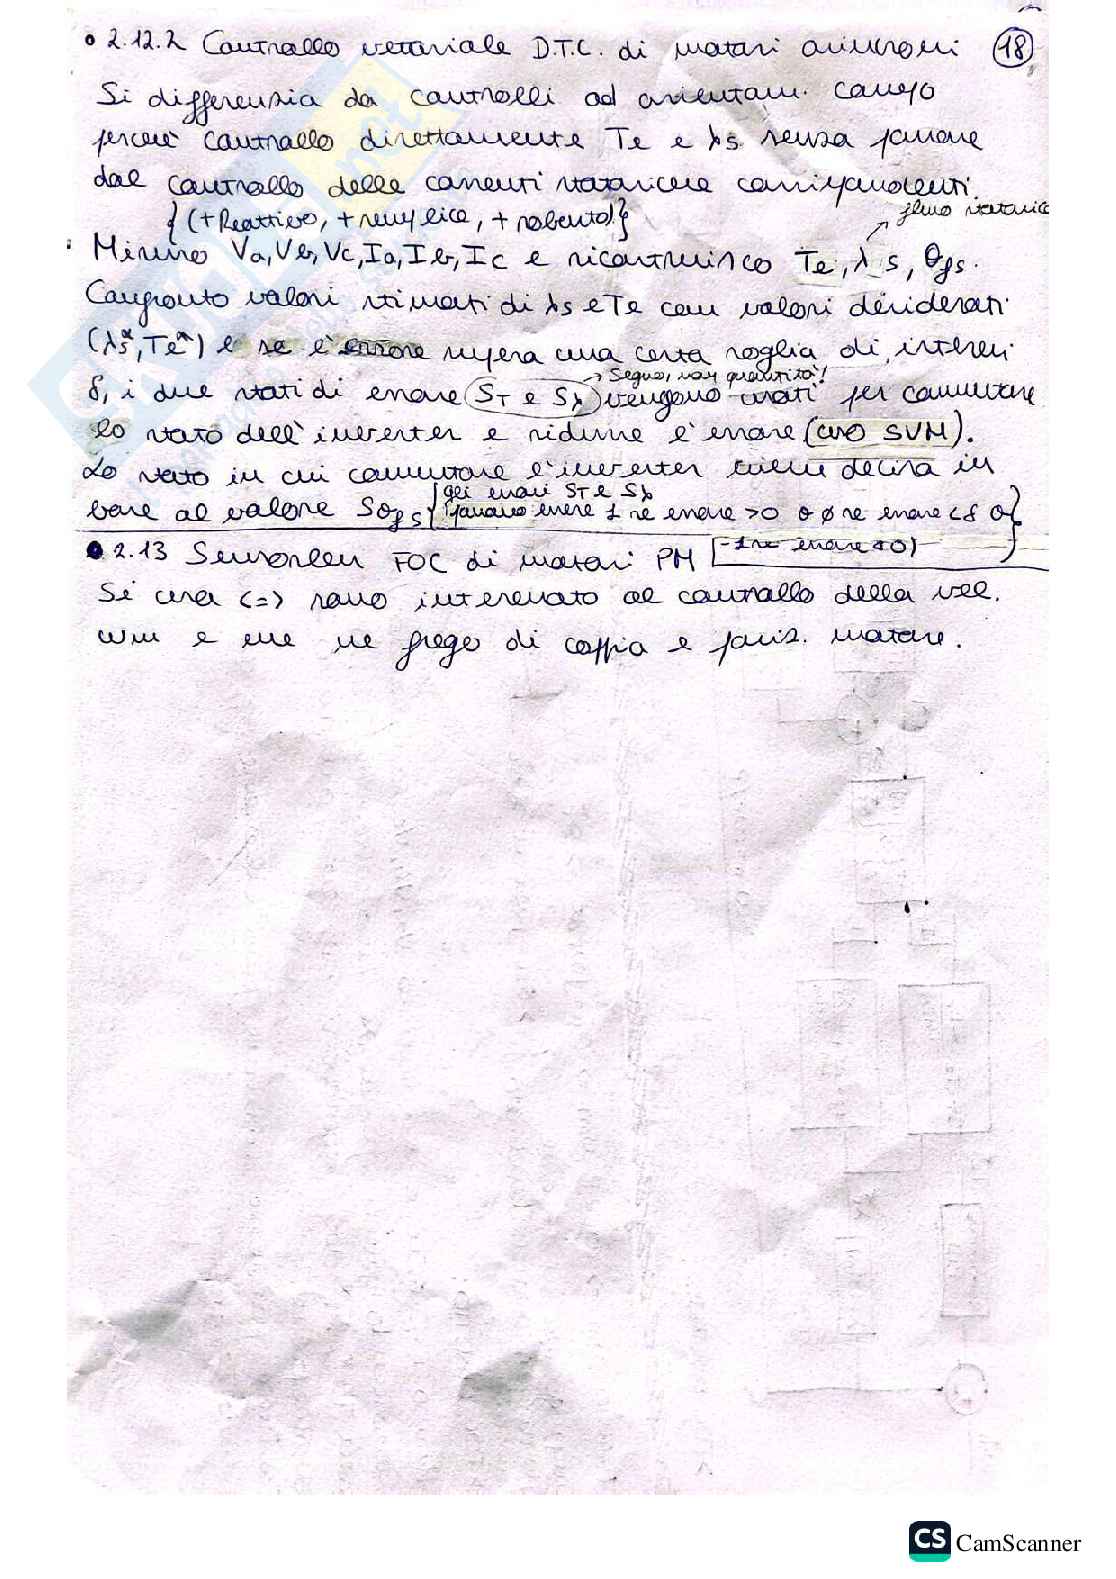 • 2.12.2 Controllo vettoriale D.T.C. di motori asincroni 18
Si differenzia da controlli ad orientam. campo
perché controllo direttamente Te e λs senza passare
dal controllo delle correnti statoriche corrispondenti.
{(+Reattivo, +semplice, +robusto)}
flusso statorico
• Misuro Va, Vb, Vc, Ia, Ib, Ic e ricostruisco Te, λs, θφs.
Confronto valori stimati di λs e Te con valori desiderati
(λs*, Te*) e se l'errore supera una certa soglia di isteresi
→ Segno, non quantità!
δ, i due stati di errore (ST e Sλ) vengono usati per commutare
lo stato dell'inverter e ridurre l'errore (uso SVM).
Lo stato in cui commutare l'inverter viene deciso in
base al valore Sθφs {gli errori ST e Sλ
possono essere 1 se errore >0 o ø se errore <δ o
-1 se errore <0)}
• 2.13 Sensorless FOC di motori PM
Si usa (=> sono interessato al controllo della vel.
ωm e me ne frego di coppia e posiz. motore.
CS CamScanner